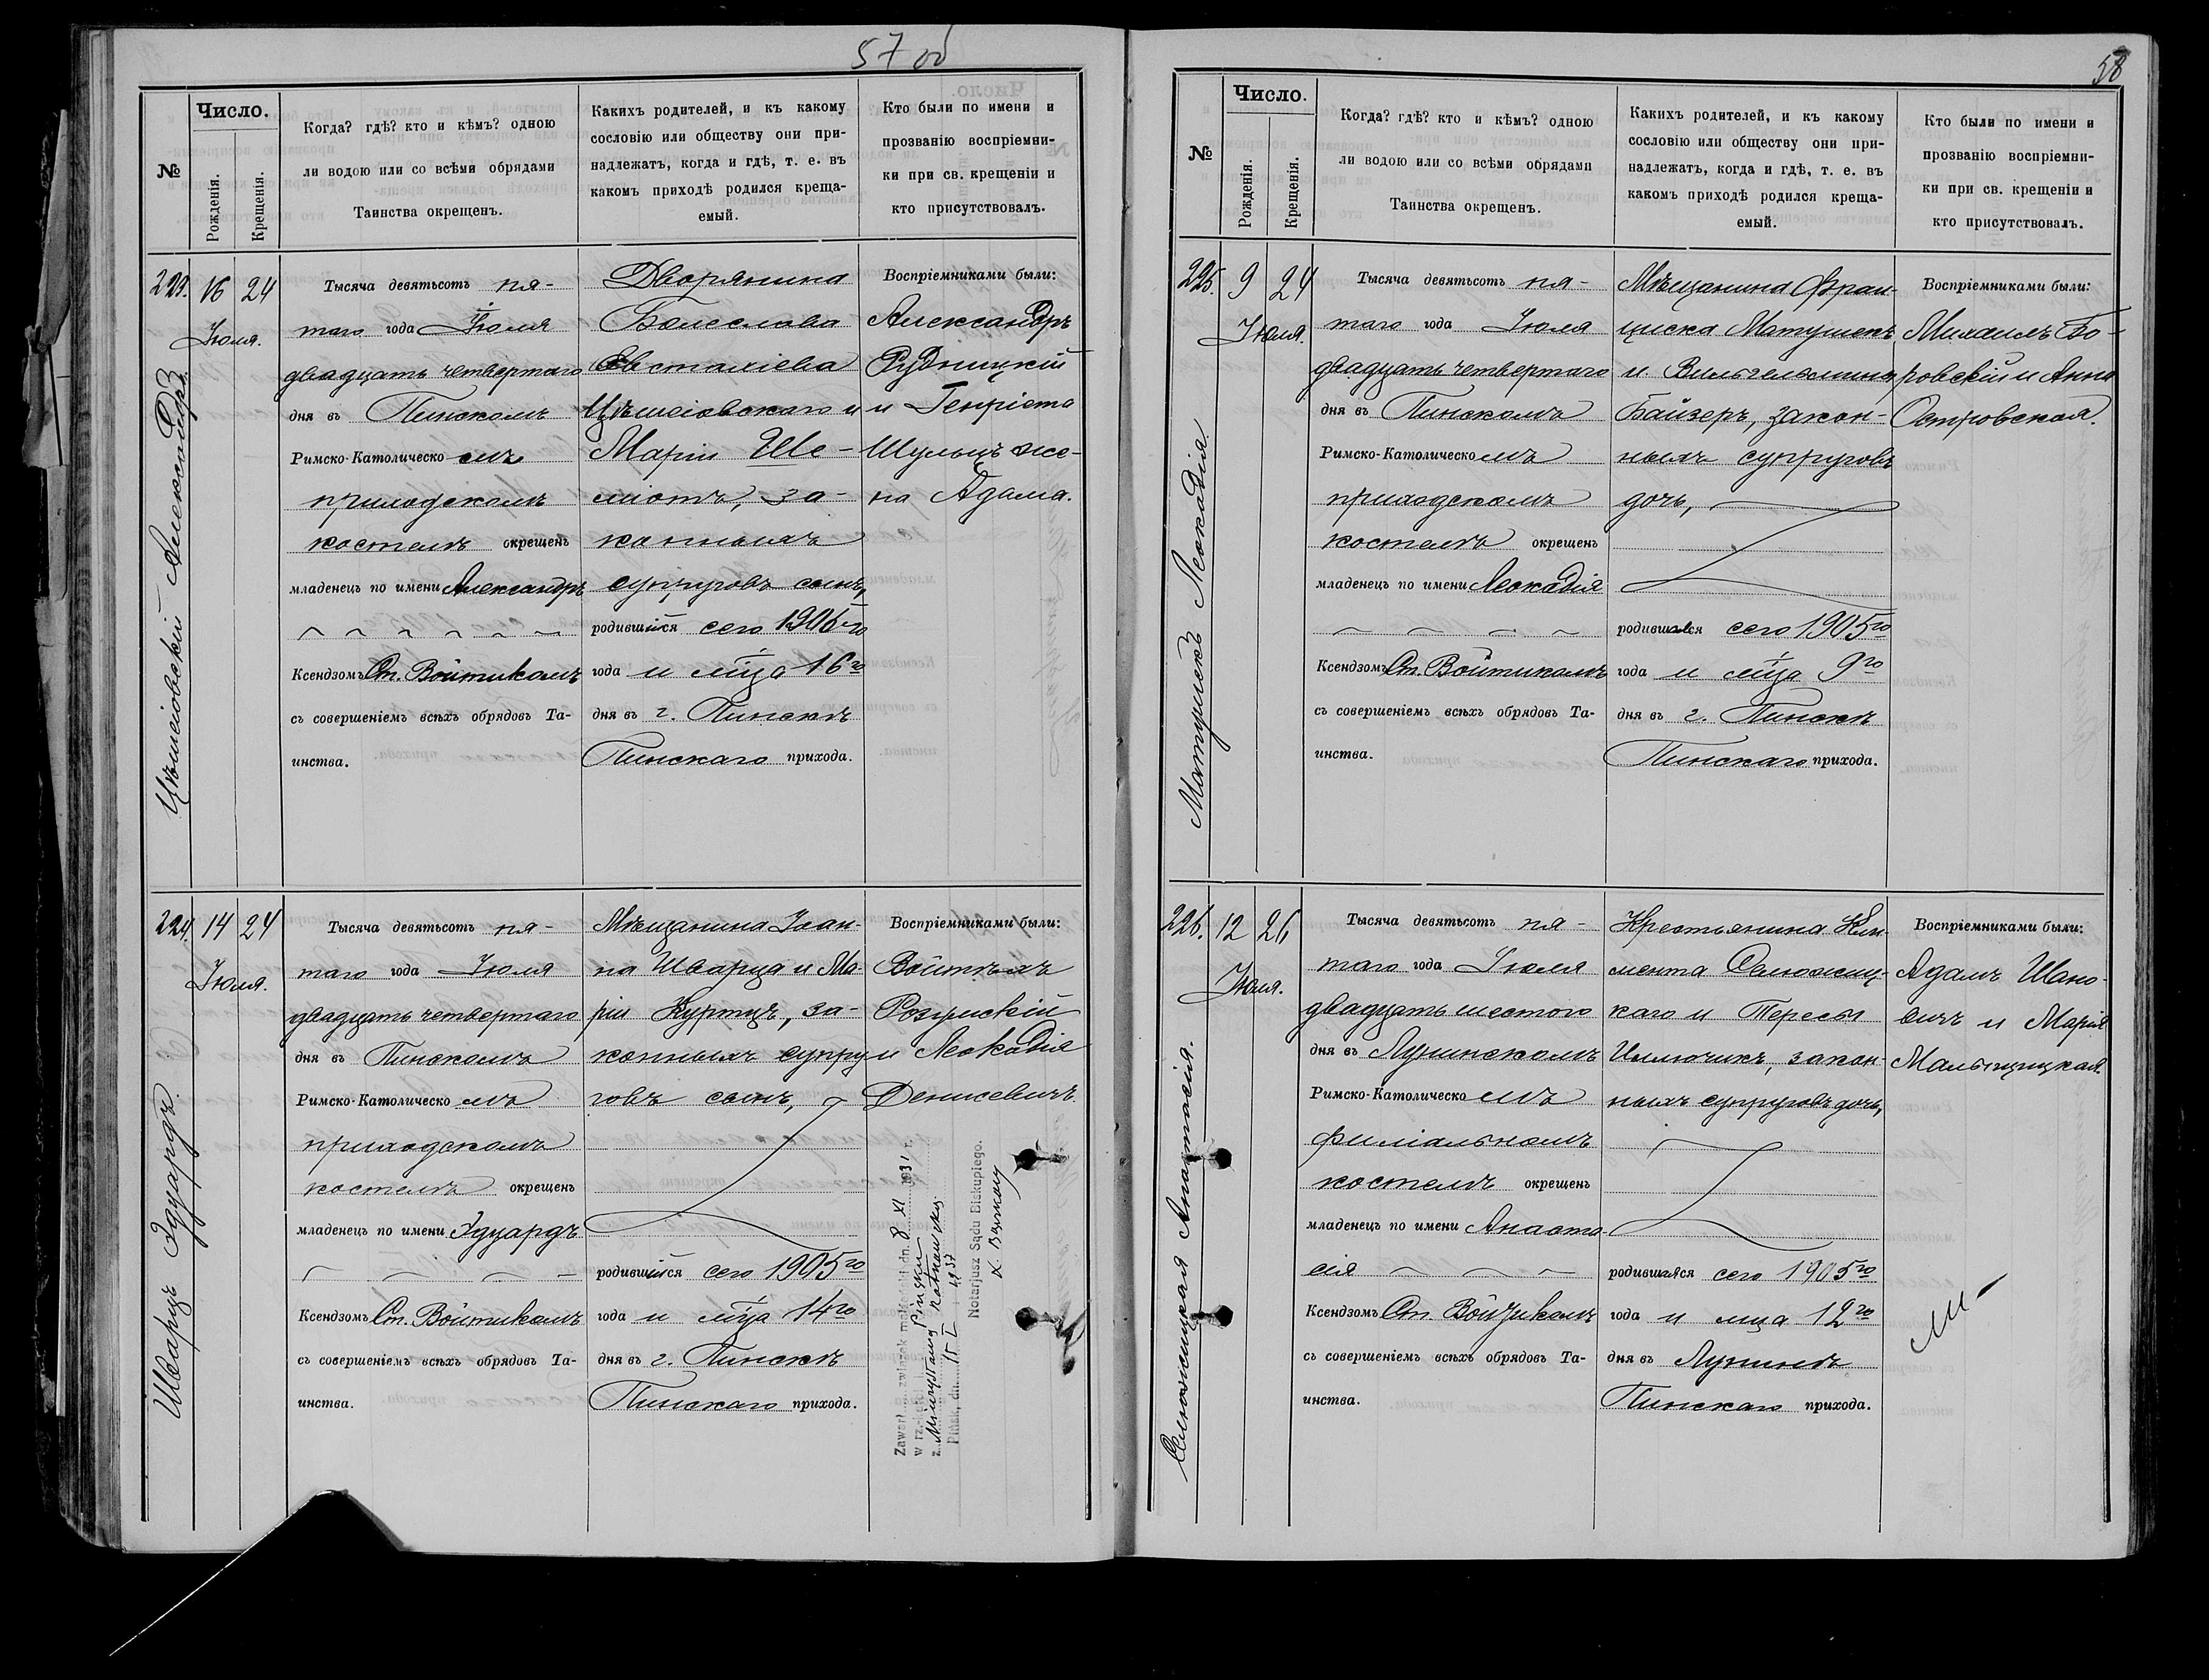 57 об
№
Число.
Рожденія.
Крещенія.
Когда? гдѣ? кто и кѣмъ? одною
ли водою или со всѣми обрядами
Таинства окрещенъ.
Какихъ родителей, и къ какому
сословію или обществу они при-
надлежатъ, когда и гдѣ, т. е. въ
какомъ приходѣ родился креща-
емый.
Кто были по имени и
прозванію воспріемни-
ки при св. крещеніи и
кто присутствовалъ.
223. 16 24
Іюля.
Цѣшейовскій Александръ
Тысяча девятьсотъ пя-
таго года Іюля
двадцать четвертаго
дня въ Пинскомъ
Римско-Католическомъ
приходскомъ
костелѣ окрещенъ
младенецъ по имени Александръ
Ксендзомъ Ст. Войтикомъ
съ совершеніемъ всѣхъ обрядовъ Та-
инства.
Дворянина
Болеслава
Евстахіева
Цѣшейовскаго и
Маріи Ше-
міотъ, за-
конныхъ
супруговъ сынъ,
родившійся сего 1905го
года и м-ца 16го
дня въ г. Пинскѣ
Пинскаго прихода.
Воспріемниками были:
Александръ
Рудницкій
и Генріета
Шульцъ же-
на Адама.
224. 14 24
Іюля.
Шварцъ Эдуардъ.
Тысяча девятьсотъ пя-
таго года Іюля
двадцать четвертаго
дня въ Пинскомъ
Римско-Католическомъ
приходскомъ
костелѣ окрещенъ
младенецъ по имени Эдуардъ
Ксендзомъ Ст. Войтикомъ
съ совершеніемъ всѣхъ обрядовъ Та-
инства.
Мѣщанина Іоан-
на Шварца и Ма-
ріи Куртцъ, за-
конныхъ супру-
говъ сынъ,
родившійся сего 1905го
года и м-ца 14го
дня въ г. Пинскѣ
Пинскаго прихода.
Воспріемниками были:
Войтѣхъ
Розумскій
и Леокадія
Денисевичъ.
Zawarł związek małżeński dn. 8 XI 1931 r.
Pińsku
Pińsk, dn. 15 I 1937
Notarjusz Sądu Biskupiego.
58
№
Число.
Рожденія.
Крещенія.
Когда? гдѣ? кто и кѣмъ? одною
ли водою или со всѣми обрядами
Таинства окрещенъ.
Какихъ родителей, и къ какому
сословію или обществу они при-
надлежатъ, когда и гдѣ, т. е. въ
какомъ приходѣ родился креща-
емый.
Кто были по имени и
прозванію воспріемни-
ки при св. крещеніи и
кто присутствовалъ.
225. 9 24
Іюля.
Матушекъ Леокадія.
Тысяча девятьсотъ пя-
таго года Іюля
двадцать четвертаго
дня въ Пинскомъ
Римско-Католическомъ
приходскомъ
костелѣ окрещенъ
младенецъ по имени Леокадія
Ксендзомъ Ст. Войтикомъ
съ совершеніемъ всѣхъ обрядовъ Та-
инства.
Мѣщанина Фран-
циска Матушекъ
и Вильгельмины
Байзеръ, закон-
ныхъ супруговъ
дочь,
родившаяся сего 1905го
года и м-ца 9го
дня въ г. Пинскѣ
Пинскаго прихода.
Воспріемниками были:
Михаилъ Бо-
ровскій и Анна
Островская.
226. 12 26
Іюля.
Слюжицкая Анастасія.
Тысяча девятьсотъ пя-
таго года Іюля
двадцать шестого
дня въ Лунинскомъ
Римско-Католическомъ
филіальномъ
костелѣ окрещенъ
младенецъ по имени Анаста-
сія
Ксендзомъ Ст. Войтикомъ
съ совершеніемъ всѣхъ обрядовъ Та-
инства.
Крестьянина Кли-
мента Слюжиц-
каго и Тересы
Иллючикъ, закон-
ныхъ супруговъ дочь,
родившаяся сего 1905го
года и мца 12го
дня въ Лунинѣ
Пинскаго прихода.
Воспріемниками были:
Адамъ Шано-
вичъ и Марія
Мальщицкая.